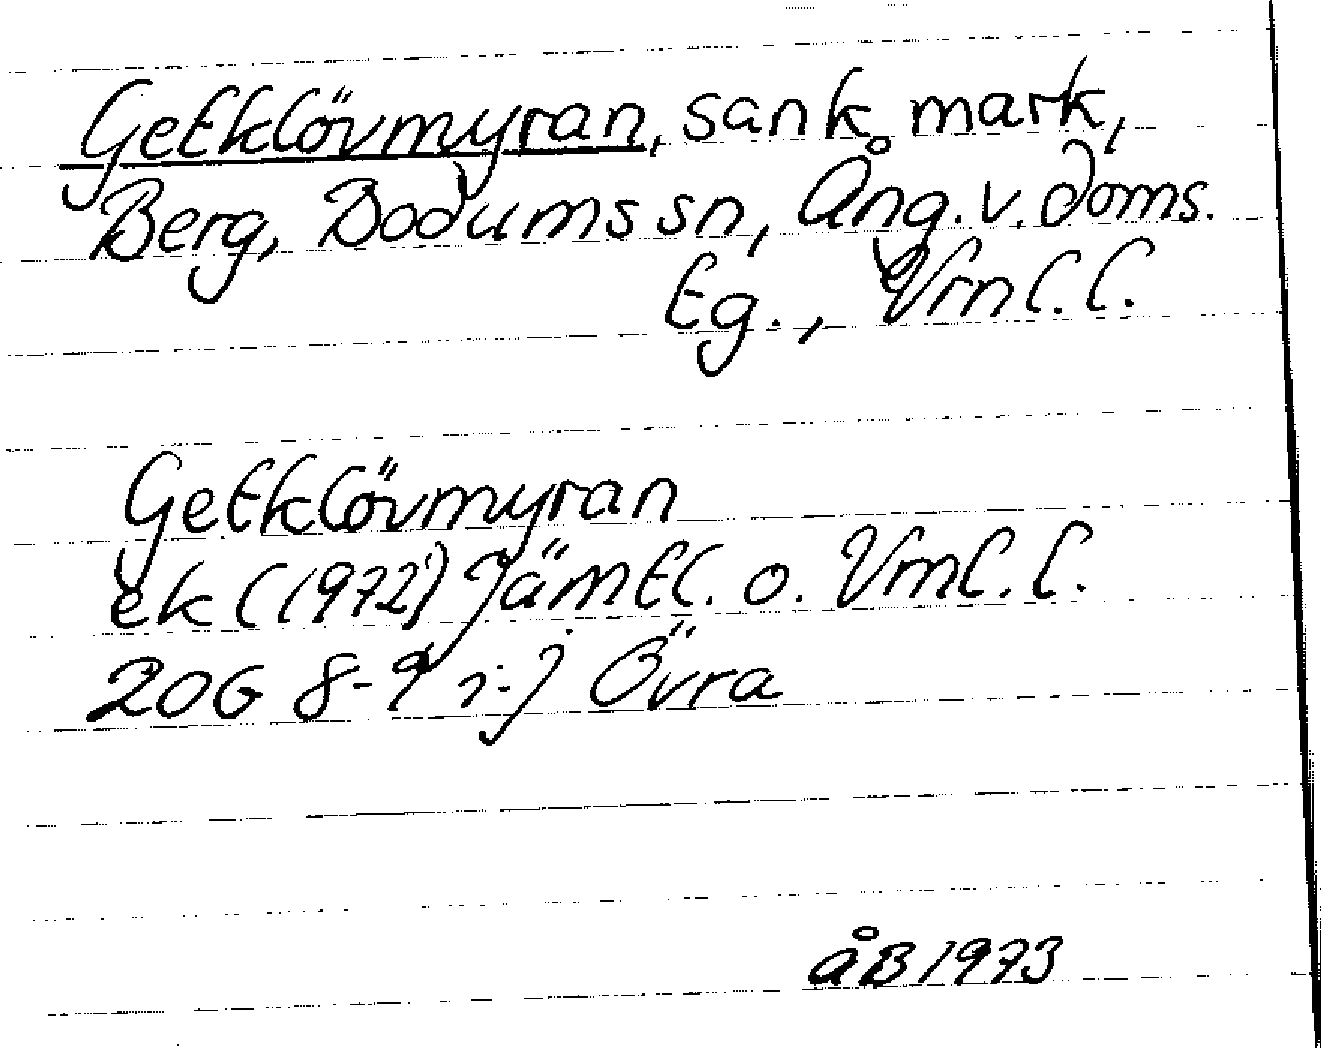 Getklövmyran, sank mark,
Berg, Bodums sn, Ång. v. doms.
Eg., Vrnl. l.
Getklövmyran
ek (1972) Jämtl. o. Vrnl. l.
20G 8-9 i-j Övra
åB 1973